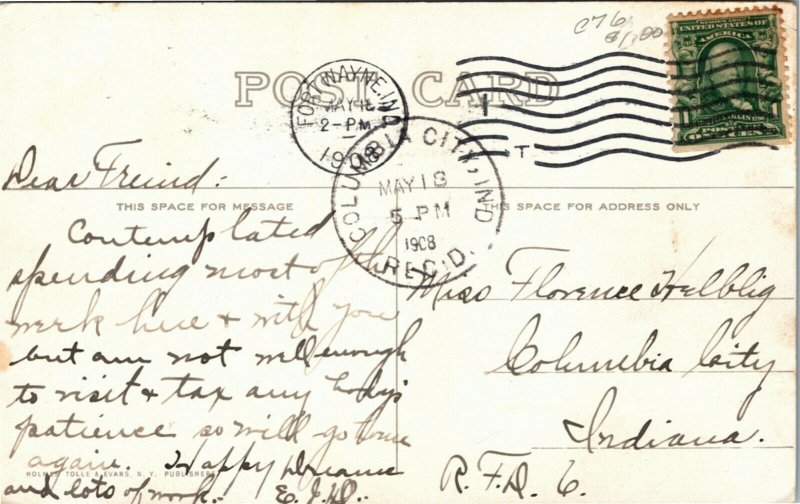 C76
$1.00
SERIES 1902
UNITED STATES OF
AMERICA
FRANKLIN 1790
POSTAGE
ONE CENT
POST CARD
FORT WAYNE, IND.
MAY 18
2-PM
1908
COLUMBIA CITY, IND.
MAY 18
5 PM
1908
REC'D.
THIS SPACE FOR MESSAGE
THIS SPACE FOR ADDRESS ONLY
Dear Freind:
Contemplated
spending most of the
week here + with you
but am not well enough
to visit + tax any body's
patience so will go home
again. Happy Dreams
and lots of work. E.J.D.
HOLMES TOLLE & EVANS, N. Y. PUBLISHERS
Miss Florence Helblig
Columbia City
Indiana.
R.F.D. 6.